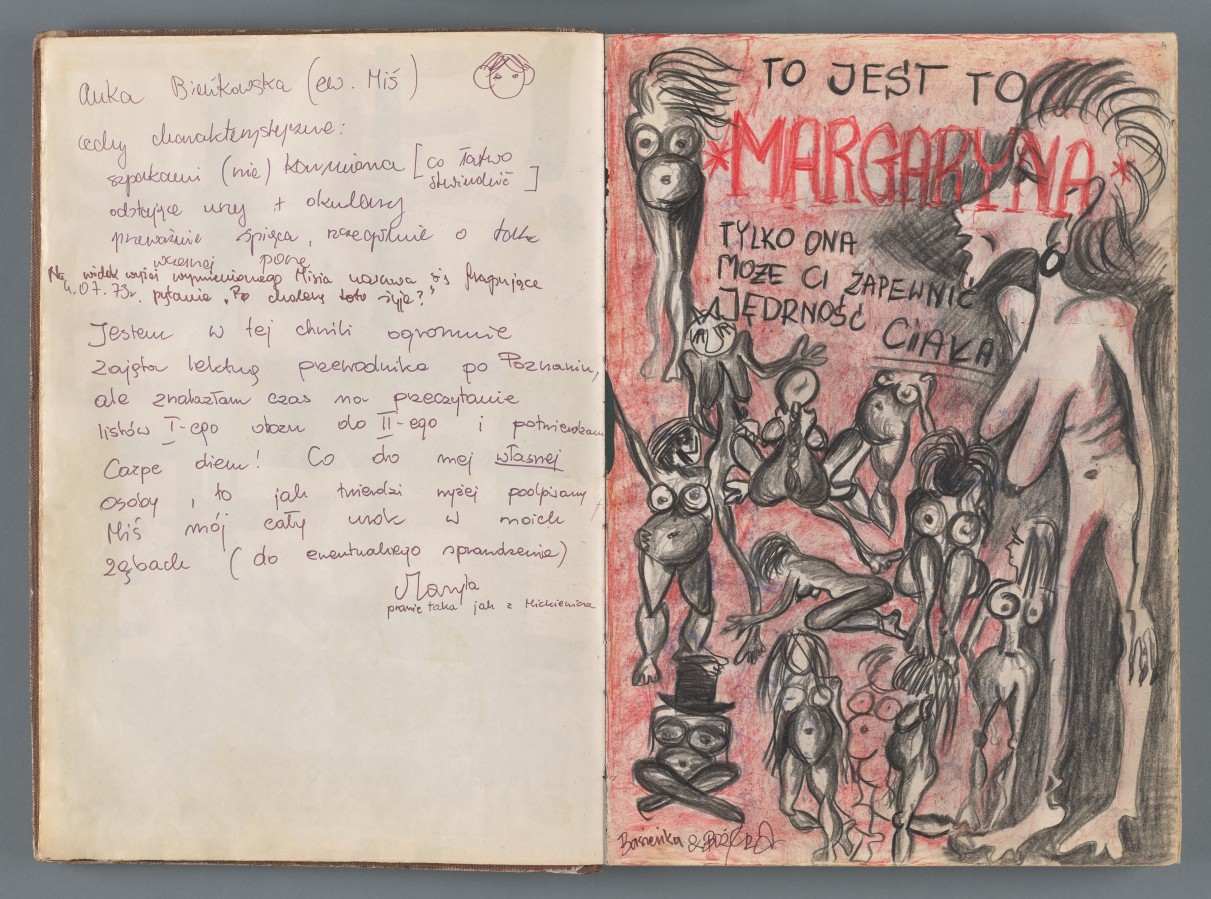 Anka Bieńkowska (ew. Miś)
cechy charakterystyczne:
szpakami (nie) karmiona [co łatwo
stwierdzić]
odstające uszy + okulary
przeważnie śpiąca, szczególnie o
wczesnej porę
Na widok wyżej wymienionego Misia nasuwa się frapujące
4.07.73r. pytanie „Po cholerę toto żyje?"
Jestem w tej chwili ogromnie
zajęta lekturą przewodnika po Poznaniu,
ale znalazłam czas na przeczytanie
listów I-ego obozu do II-ego i potwierdzam
Carpe diem! Co do mej własnej
osoby, to jak twierdzi wyżej podpisany
Miś mój cały urok w moich
zębach (do ewentualnego sprawdzenia)
Maryla
prawie taka jak z Mickiewicza
4
TO JEST TO
*MARGARYNA*
TYLKO ONA
MOŻE CI ZAPEWNIĆ
JĘDRNOŚĆ
CIAŁA
Basieńka &